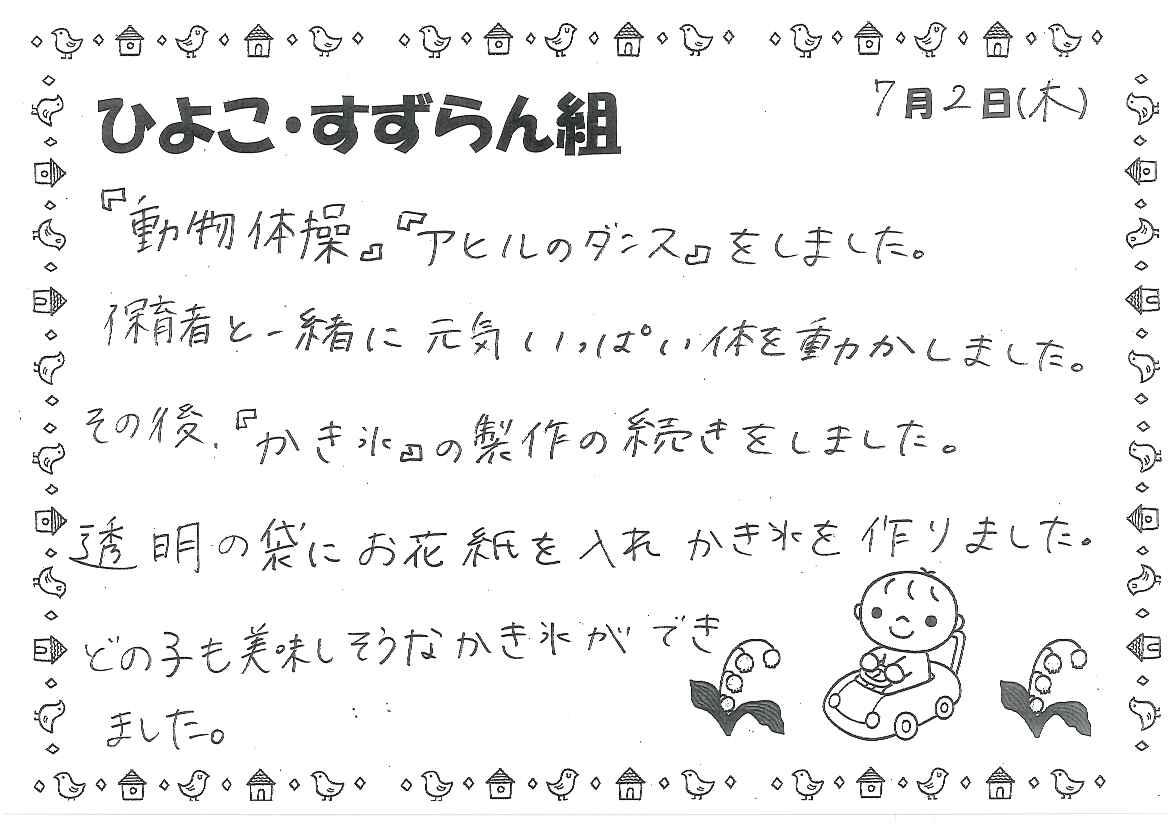 ひよこ・すずらん組
7月2日(木)
『動物体操』『アヒルのダンス』をしました。
保育者と一緒に元気いっぱい体を動かしました。
その後、『かき氷』の製作の続きをしました。
透明の袋にお花紙を入れかき氷を作りました。
どの子も美味しそうなかき氷ができ
ました。